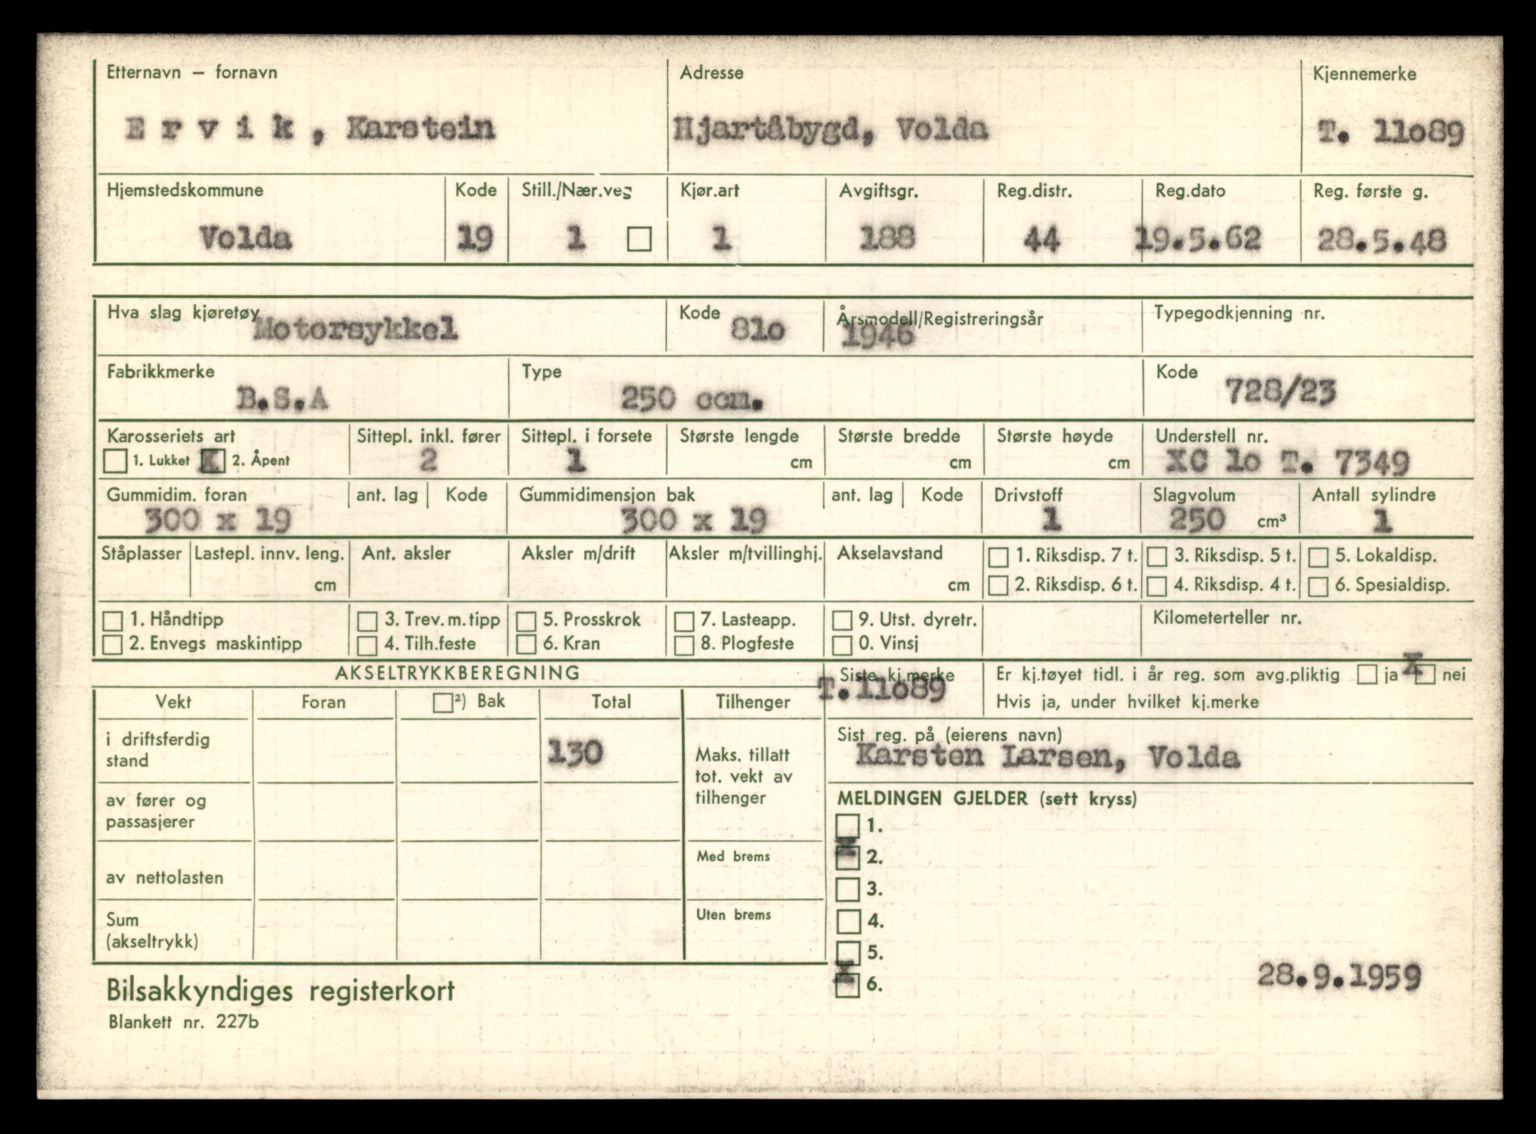 Etternavn – fornavn Adresse Kjennemerke
E r v i k , Karstein Hjartåbygd, Volda T. 11o89
Hjemstedskommune Kode Still./Nær.veg Kjør.art Avgiftsgr. Reg.distr. Reg.dato Reg. første g.
Volda 19 1 1 188 44 19.5.62 28.5.48
Hva slag kjøretøy Kode Årsmodell/Registreringsår Typegodkjenning nr.
Motorsykkel 81o 1946
Fabrikkmerke Type Kode
B.S.A 250 ccm. 728/23
Karosseriets art Sittepl. inkl. fører Sittepl. i forsete Største lengde Største bredde Største høyde Understell nr.
1. Lukket X 2. Åpent 2 1 cm cm cm XC 1o T. 7349
Gummidim. foran ant. lag Kode Gummidimensjon bak ant. lag Kode Drivstoff Slagvolum Antall sylindre
300 x 19 300 x 19 1 250 cm³ 1
Ståplasser Lastepl. innv. leng. Ant. aksler Aksler m/drift Aksler m/tvillinghj. Akselavstand 1. Riksdisp. 7 t. 3. Riksdisp. 5 t. 5. Lokaldisp.
cm cm 2. Riksdisp. 6 t. 4. Riksdisp. 4 t. 6. Spesialdisp.
1. Håndtipp 3. Trev.m.tipp 5. Prosskrok 7. Lasteapp. 9. Utst. dyretr. Kilometerteller nr.
2. Envegs maskintipp 4. Tilh.feste 6. Kran 8. Plogfeste 0. Vinsj
AKSELTRYKKBEREGNING Siste kj.merke Er kj.tøyet tidl. i år reg. som avg.pliktig ja X nei
T.11o89
Vekt Foran ²) Bak Total Tilhenger Hvis ja, under hvilket kj.merke
i driftsferdig stand 130 Maks. tillatt tot. vekt av tilhenger
Sist reg. på (eierens navn)
Karsten Larsen, Volda
av fører og passasjerer
MELDINGEN GJELDER (sett kryss)
1.
X 2.
av nettolasten Med brems
3.
Sum (akseltrykk) Uten brems
4.
5.
X 6.
28.9.1959
Bilsakkyndiges registerkort
Blankett nr. 227b